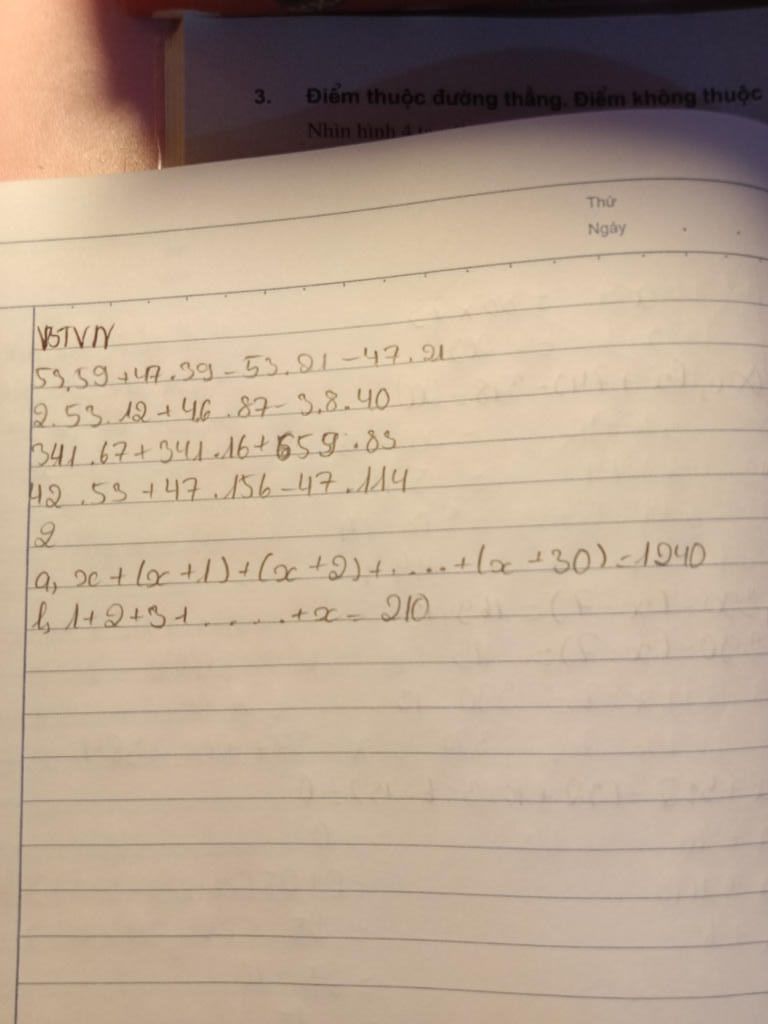 3. Điểm thuộc đường thẳng. Điểm không thuộc
Nhìn hình 4
Thứ
Ngày
BTVN
53.59+47.39-53.21-47.21
2.53.12+4.6.87-3.8.40
341.67+341.16+659.83
42.53+47.156-47.114
2
a, x+(x+1)+(x+2)+.....+(x+30)=1240
b, 1+2+3+......+x=210